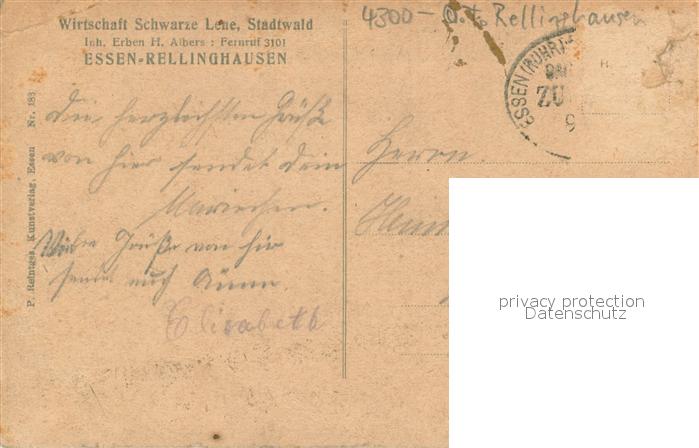 Wirtschaft Schwarze Lene, Stadtwald
Inh. Erben H. Albers : Fernruf 3101
ESSEN-RELLINGHAUSEN
4300 - O.t. Rellinghausen
ESSEN (RUHR)
ZU
9
P. Reintges, Kunstverlag, Essen Nr. 183
Die herzlichsten Grüße
von hier sendet Dein
Mariechen.
Viele Grüße von hier
sendet auch Änne.
Elisabeth
Herrn
privacy protection
Datenschutz